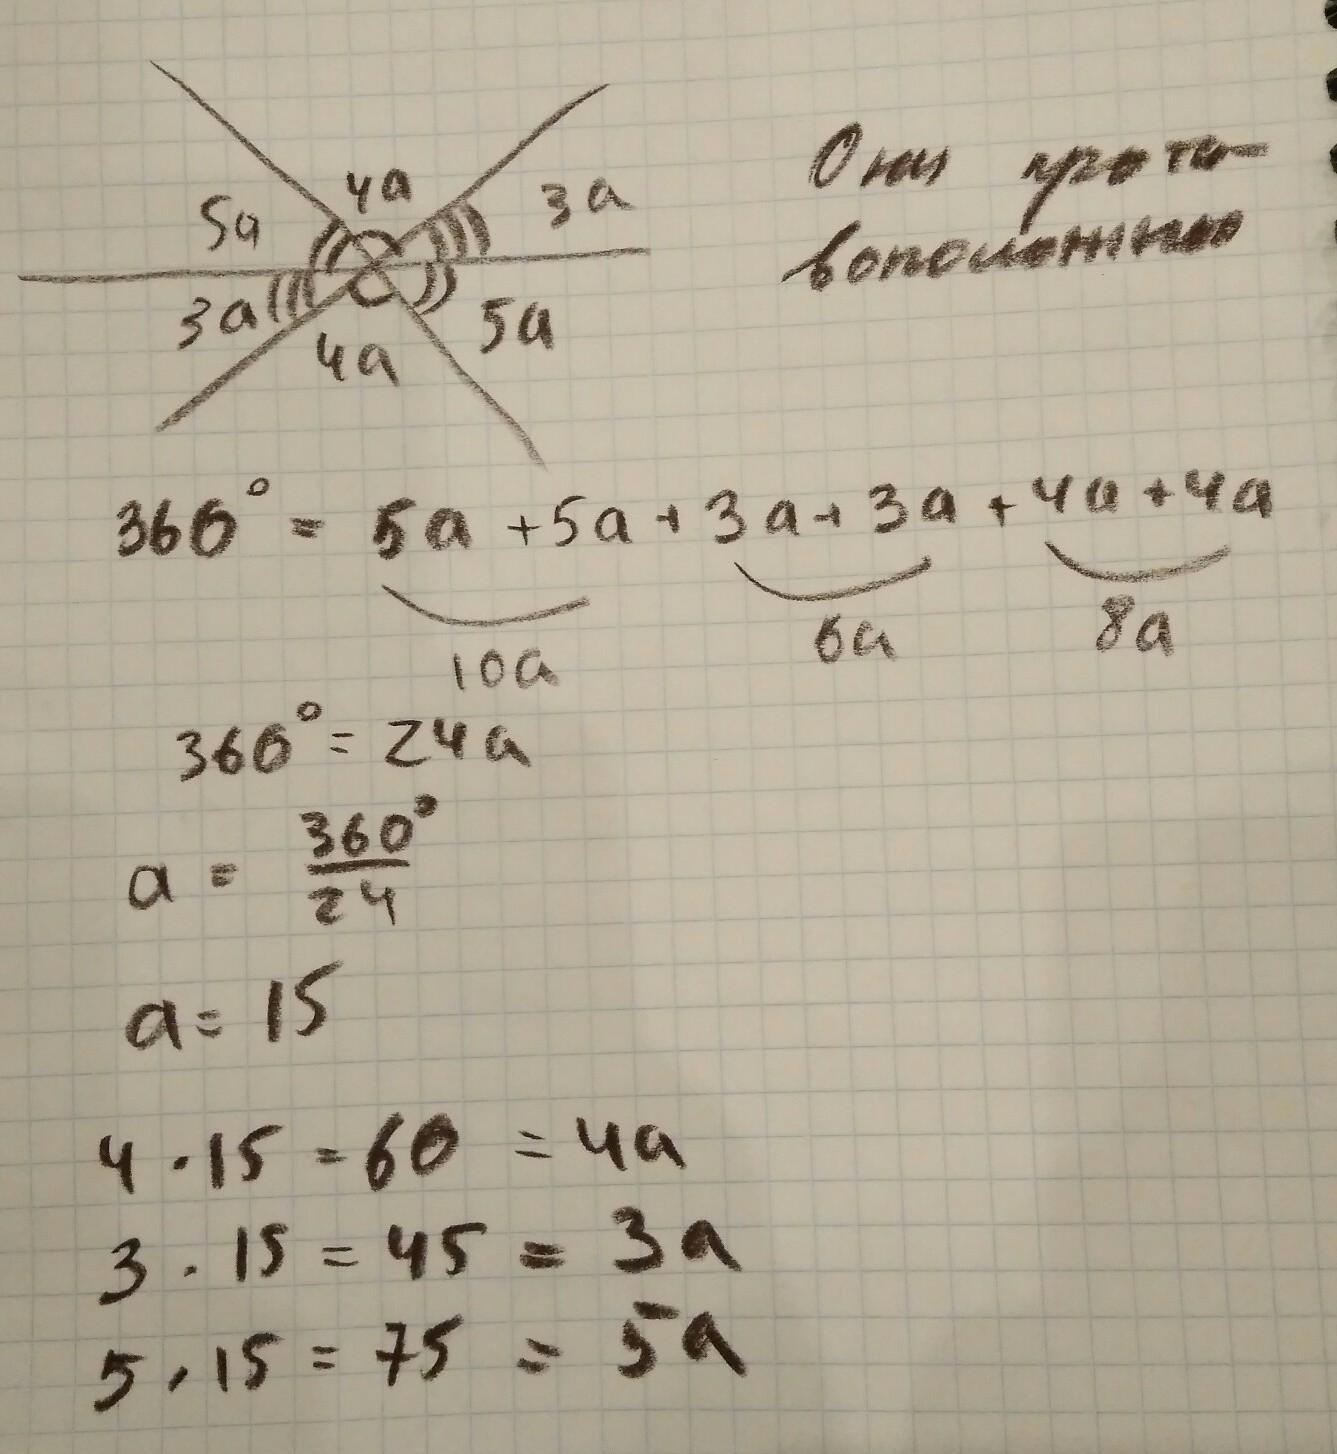 4a
5a
3a
Они проти-
вополоmные
3a
5a
4a
360° = 5a + 5a + 3a + 3a + 4a + 4a
10a
6a
8a
360° = 24a
a = 360°
24
a = 15
4 · 15 = 60 = 4a
3 · 15 = 45 = 3a
5 · 15 = 75 = 5a